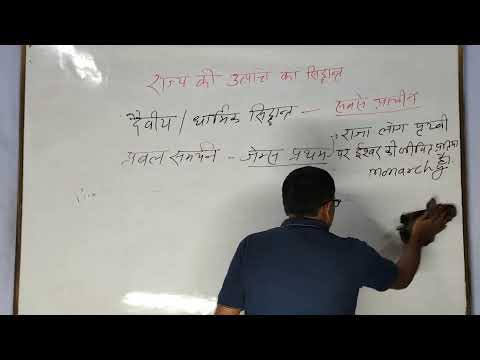 राज्य की उत्पत्ति का सिद्धान्त
दैवीय / धार्मिक सिद्धान्त — सबसे प्राचीन
प्रबल समर्थन - जेम्स प्रथम
राजा लोग पृथ्वी
पर ईश्वर की जीवित
है।
monarchy